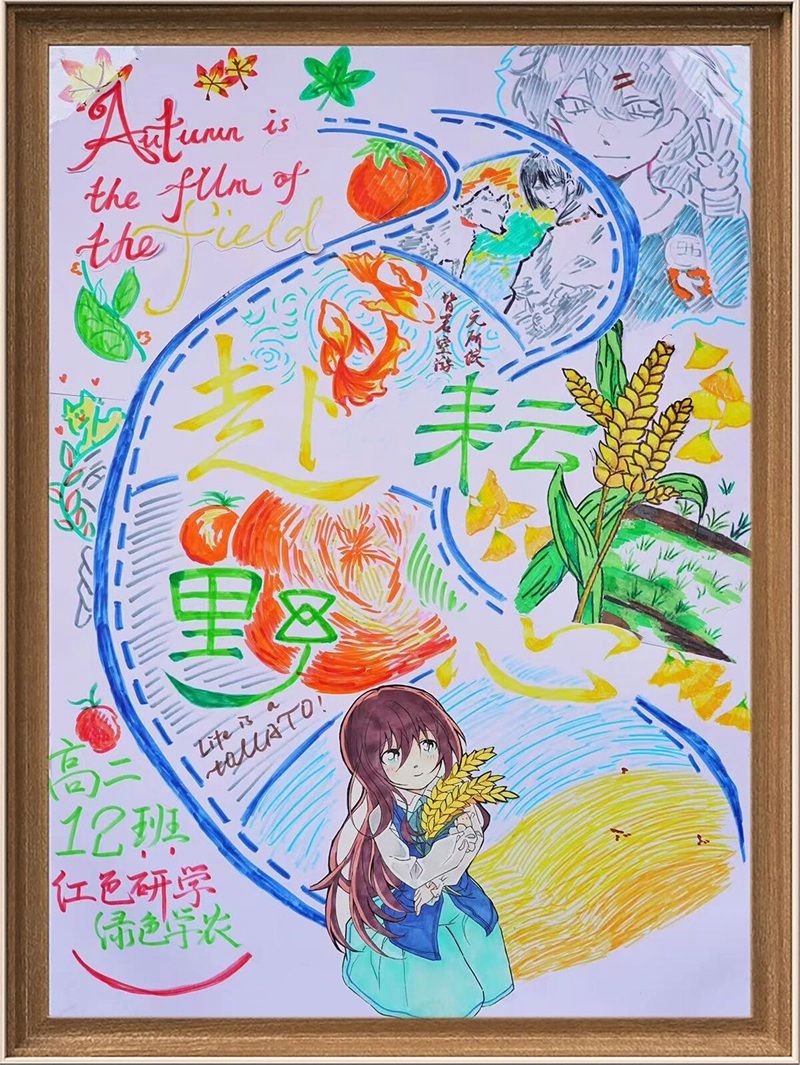 Autumn is
the film of
the field
皆若空游
无所依
赴
耘
野
心
Life is a
toMATO!
高二
12班
红色研学
绿色学农